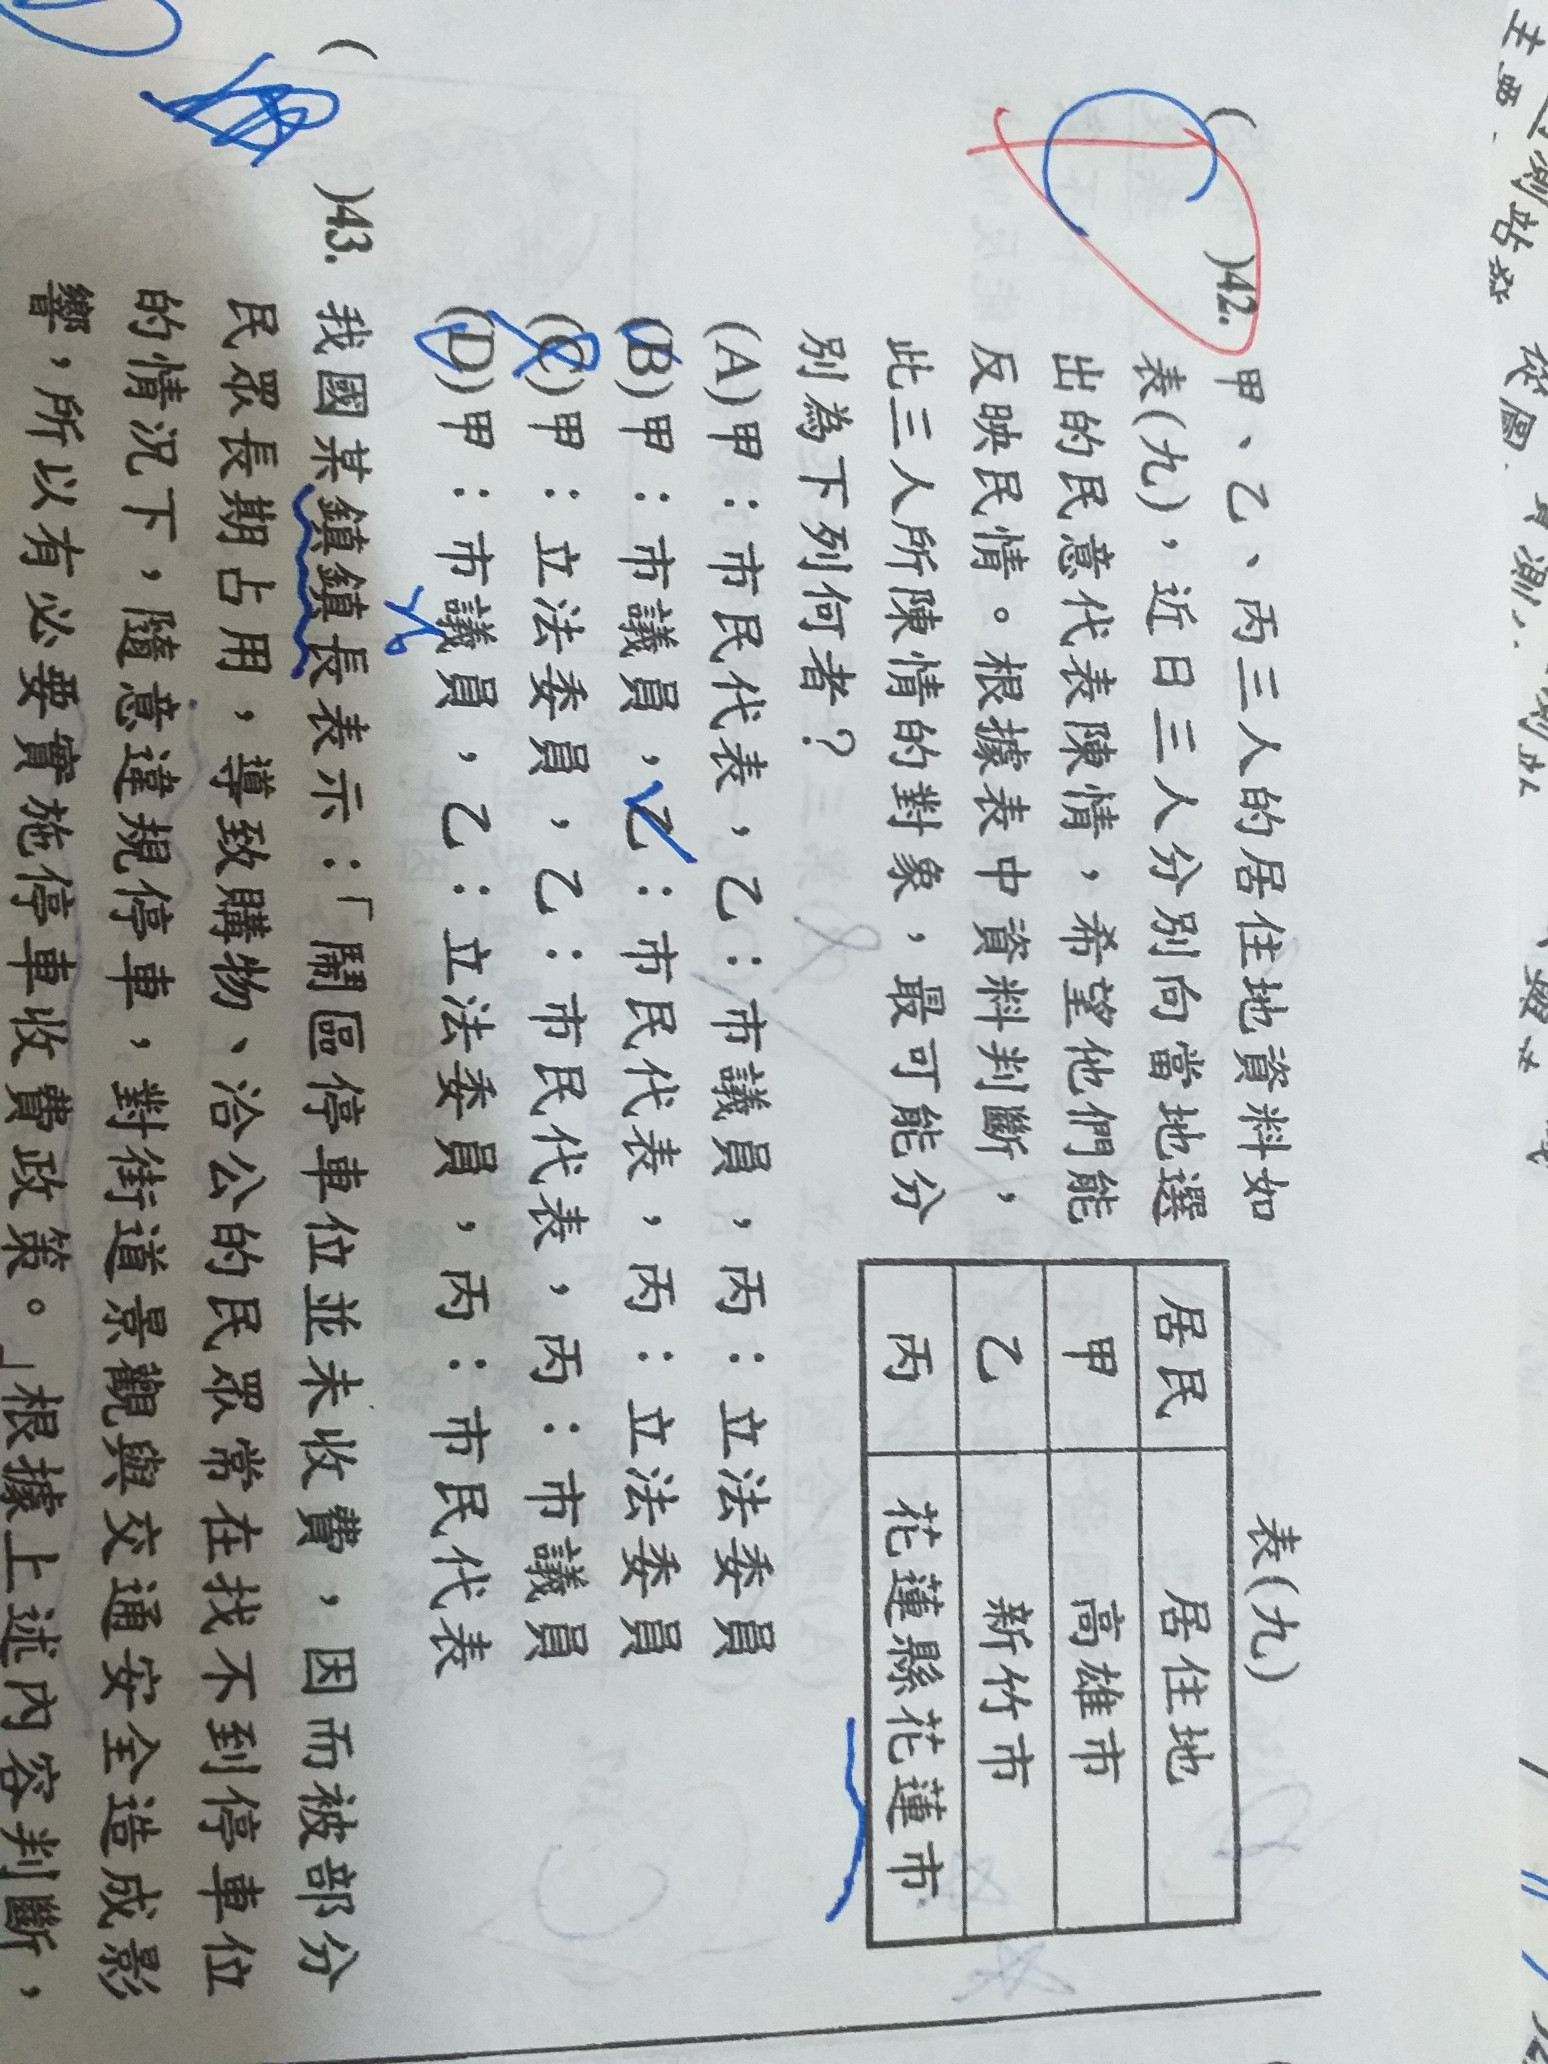 )42. 甲、乙、丙三人的居住地資料如
表(九),近日三人分別向當地選
出的民意代表陳情,希望他們能
反映民情。根據表中資料判斷,
此三人所陳情的對象,最可能分
別為下列何者?
表(九)
居民 居住地
甲 高雄市
乙 新竹市
丙 花蓮縣花蓮市
(A)甲:市民代表,乙:市議員,丙:立法委員
(B)甲:市議員,乙:市民代表,丙:立法委員
(C)甲:立法委員,乙:市民代表,丙:市議員
(D)甲:市議員,乙:立法委員,丙:市民代表
( )43. 我國某鎮鎮長表示:「鬧區停車位並未收費,因而被部分
民眾長期占用,導致購物、洽公的民眾常在找不到停車位
的情況下,隨意違規停車,對街道景觀與交通安全造成影
響,所以有必要實施停車收費政策。」根據上述內容判斷,